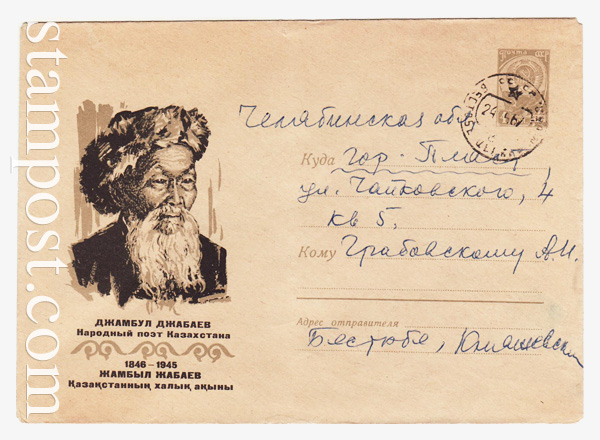 stampost.com
ПОЧТА СССР
Челябинская обл
Куда гор. Пласт,
ул. Чайковского, 4
кв 5,
Кому Грабовскому А.И.
Адрес отправителя
Бестюбе,
ДЖАМБУЛ ДЖАБАЕВ
Народный поэт Казахстана
1846–1945
ЖАМБЫЛ ЖАБАЕВ
Қазақстанның халық ақыны